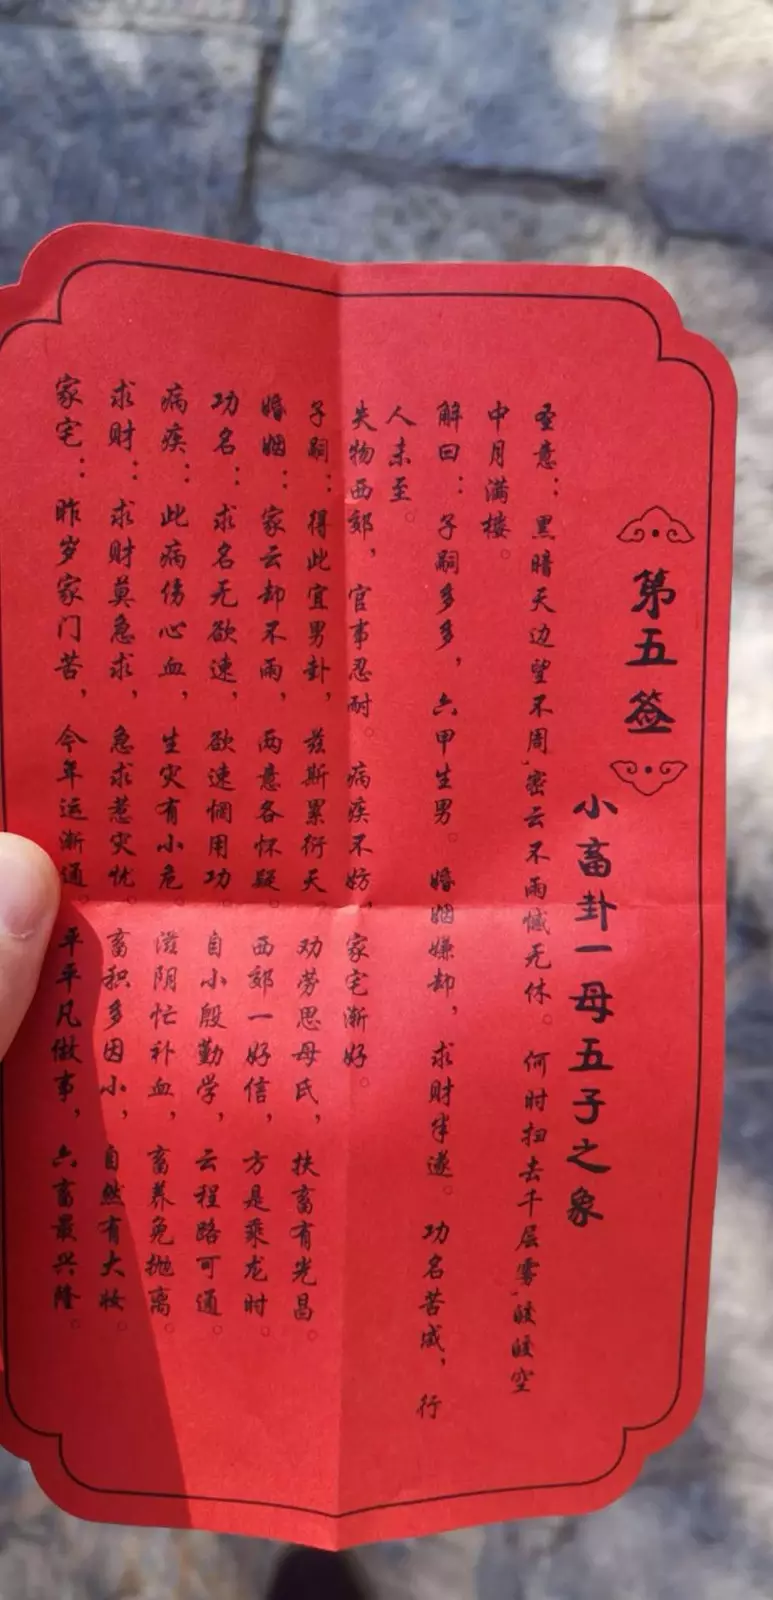 第五签
小畜卦一母五子之象
圣意：黑暗天边望不周，密云不雨憾无休。何时扫去千层雾，皎皎空
中月满楼。
解曰：子嗣多多，六甲生男。婚姻嫌却，求财未遂。功名苦成，行
人未至。
失物西郊，官事忍耐。病疾不妨，家宅渐好。
子嗣：得此宜男卦，兹斯累衍天。劝劳思母氏，扶畜有光昌。
婚姻：家云却不雨，两意各怀疑。西郊一好信，方是乘龙时。
功名：求名无欲速，欲速惘用功。自小殷勤学，云程路可通。
病疾：此病伤心血，生灾有小危。滋阴忙补血，畜养免抛离。
求财：求财莫急求，急求惹灾忧。畜积多因小，自然有大妆。
家宅：昨岁家门苦，今年运渐通。平平凡做事，六畜最兴隆。